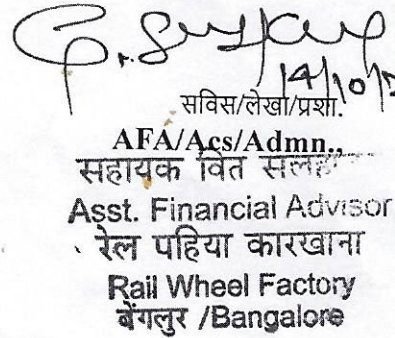 14/10/
सविस/लेखा/प्रशा.
AFA/Acs/Admn.,
सहायक वित
Asst. Financial Advisor
रेल पहिया कारखाना
Rail Wheel Factory
बेंगलुर /Bangalore